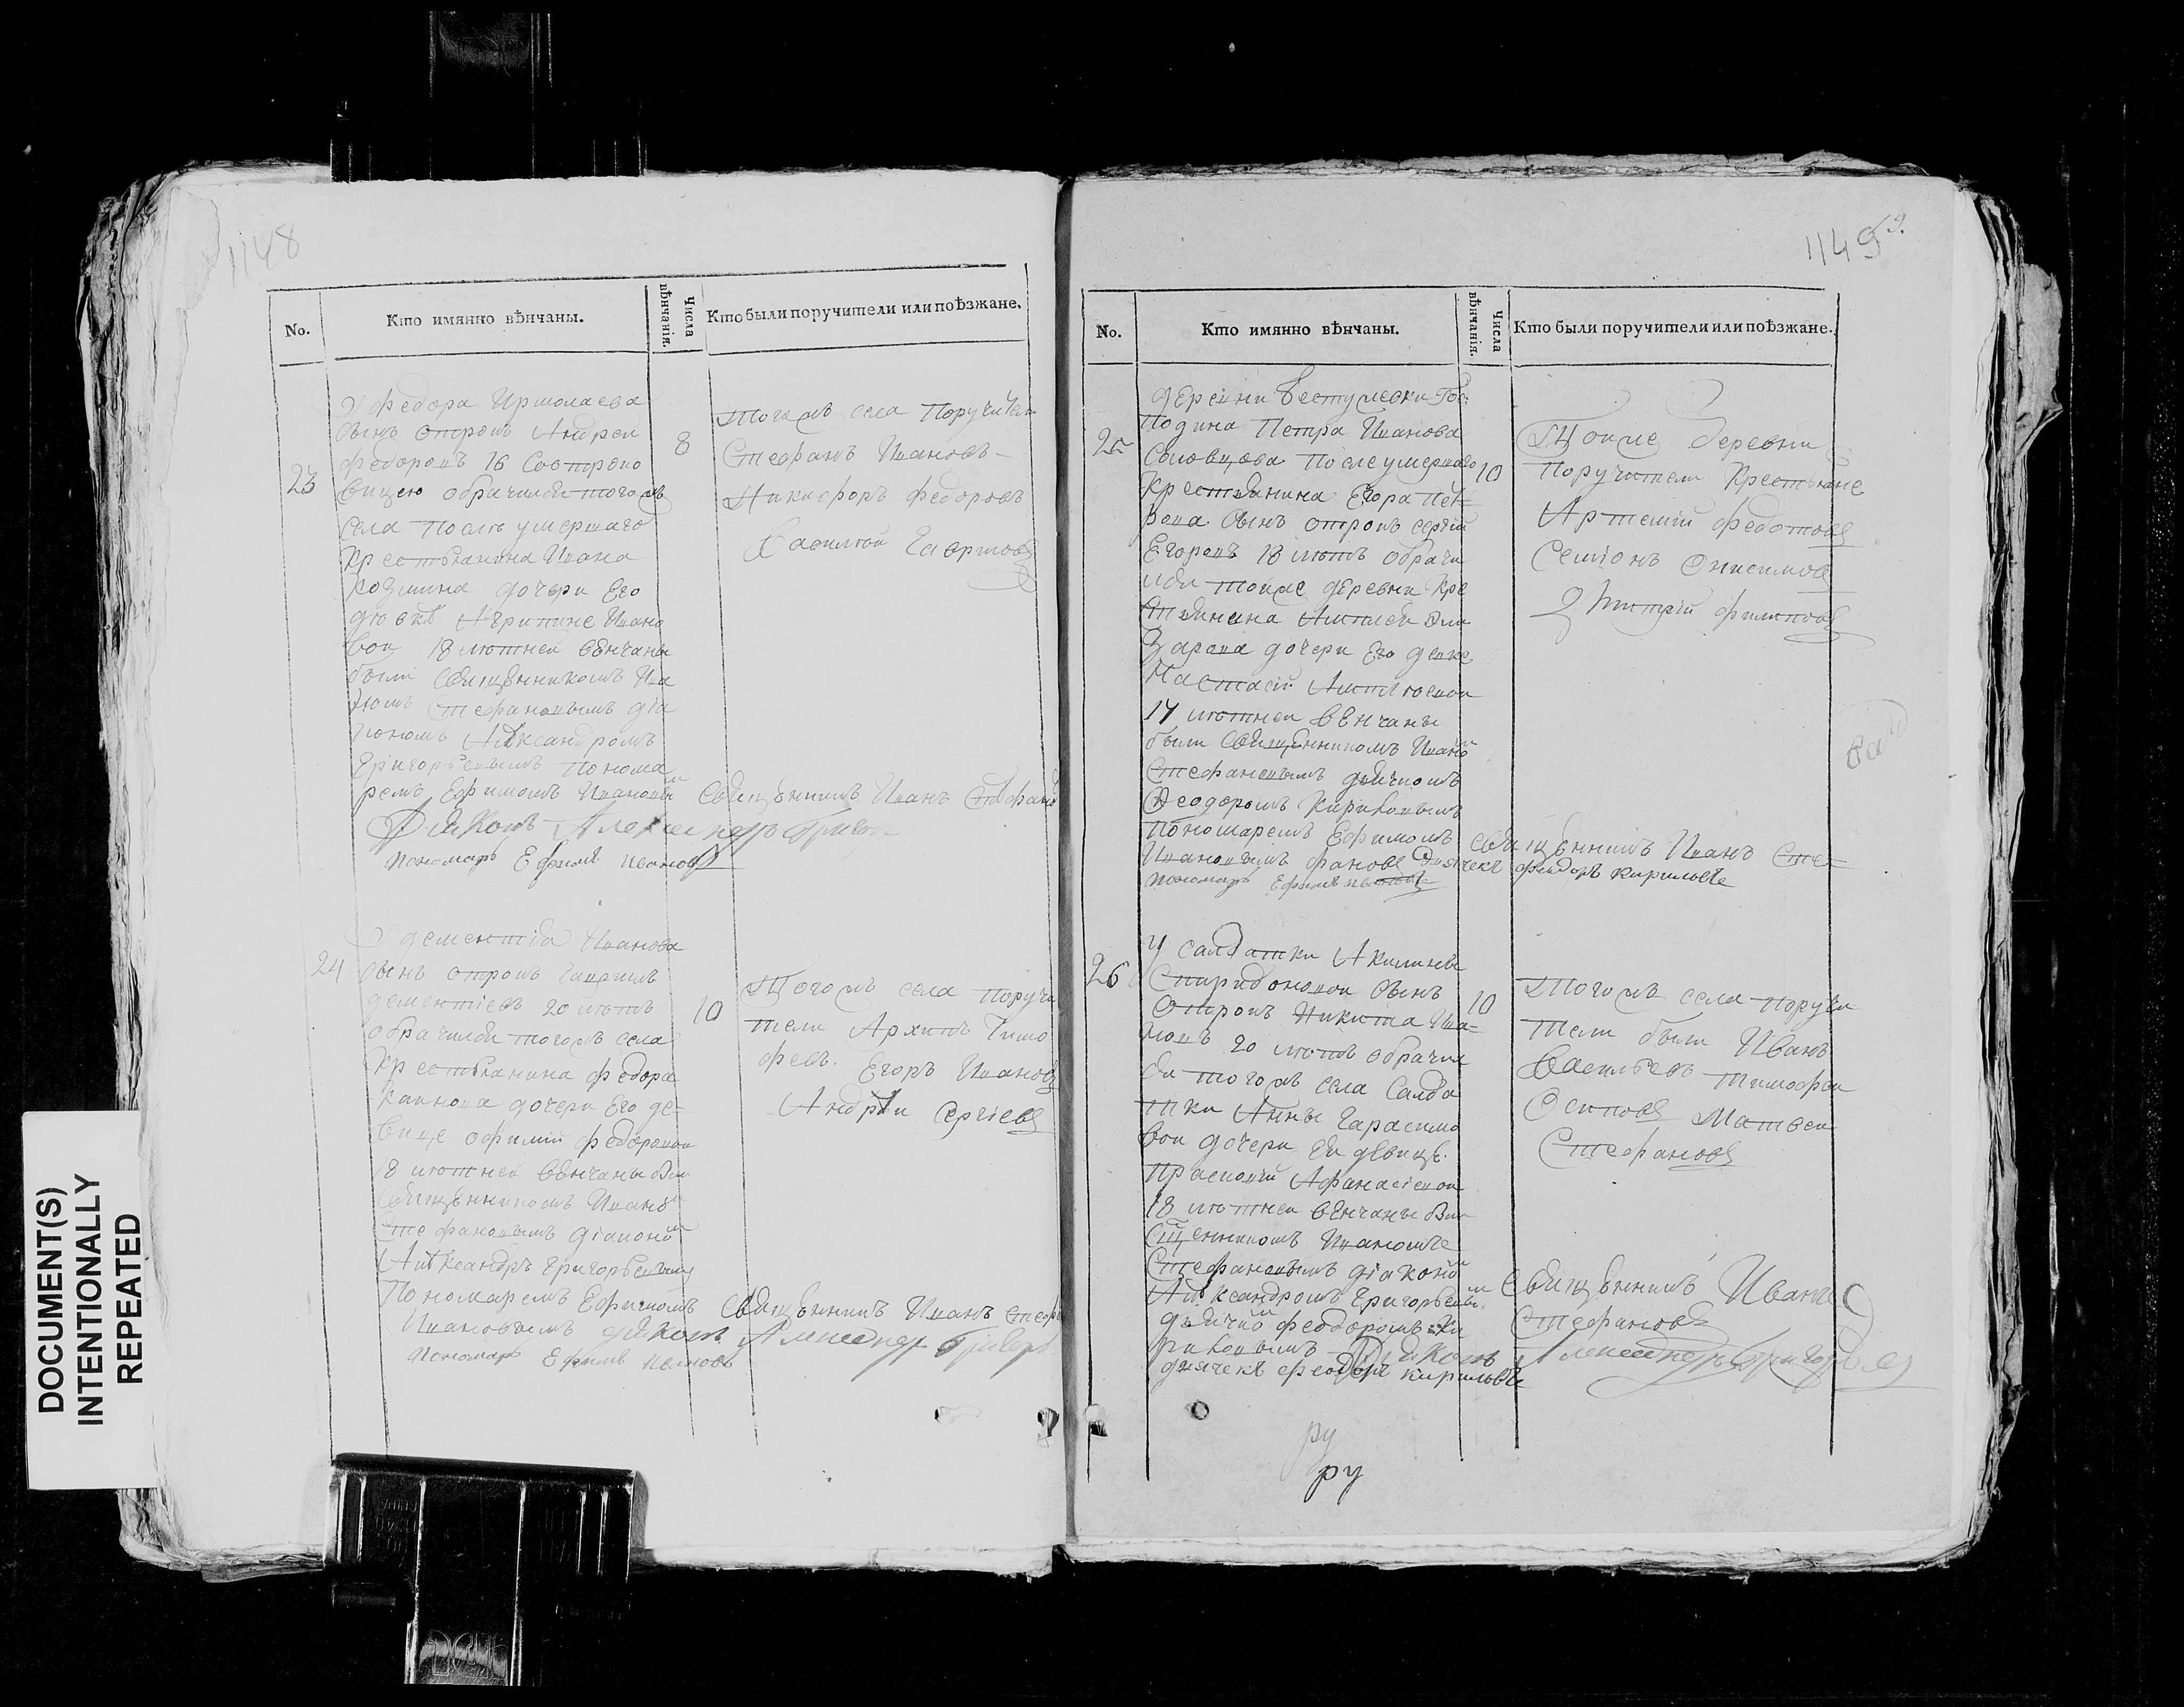 1148
No.
Кто имянно вѣнчаны.
Числа вѣнчанія.
Кто были поручители или поѣзжане.
У федора Ирмолаева
сынъ отрокъ Андрей
федоровъ 16 Соотроко
23
8
вицею обрачился тогожъ
села послѣ умершаго
крестьянина Ивана
Козмина дочери Его
девкѣ Агрипине Ивано
вой 18 лѣтней вѣнчаны
были Священникомъ Ива
номъ Стефановымъ діа
кономъ Александромъ
Григорьевымъ понома
ремъ Ефимомъ Ивановы
тогожъ села Поручител
Стефанъ Ивановъ
Никифоръ федоровъ
Василей Гавриловъ
Священникъ Иванъ Стефано
Диаконъ Александръ Григор
пономарь Ефимъ Ивановъ
24
У дементія Иванова
сынъ отрокъ Гаврилъ
дементіевъ 20 лѣтъ
10
обрачился тогожъ села
крестьянина федора
дочери Его де-
вице офиміи федоровой
18 лѣтней вѣнчаны
Священникомъ Ивано
Стефановымъ діаконо
Александръ Григорьевымъ
Пономаремъ Ефимомъ
Ивановымъ
Тогожъ села поручи
тели Архипъ Тимо
февъ. Егоръ Ивановъ
Андрѣи Сергіевъ
Священникъ Иванъ Стефа
диаконъ Александръ Григорь
пономарь Ефимъ Ивановъ
1149
No.
Кто имянно вѣнчаны.
Числа вѣнчанія.
Кто были поручители или поѣзжане.
деревни Бестужевки Гос
подина Петра Иванова
25
10
Соловцова послеумершаго
крестьянина Егора Пет=
рова сынъ отрокъ сергій
Егоровъ 18 лѣтъ обрачи
лся тойже деревни кре
стьянина
дочери Его девке
Настасіи
17 лѣтней вѣнчаны
были Священникомъ Ивано
Стефановымъ дьячкомъ
Феодоромъ Кириловымъ
пономаремъ Ефимомъ
Ивановымъ
Тойже деревни
поручители Крестьяне
Артемій федотовъ
Семіонъ Онисимовъ
Дмитрій филиповъ
Священникъ Иванъ Сте=
фановъ дьячекъ феодоръ кириловъ
пономарь Ефимъ Ивановъ
26
У салдатки Акилины
Спиридоновой сынъ
10
отрокъ Никита Ива=
новъ 20 лѣтъ обрачил
ся тогожъ села Салда
тки Анны Гарасимо
вой дочери Ея дѣвице
Прасковіи Афанасіевой
18 лѣтней вѣнчаны
Священникомъ Иваномъ
Стефановымъ діаконо
Александромъ Григорьевы
дьячко феодоромъ Ки
риловымъ
Тогожъ села поручи
тели были Иванъ
Васильевъ тимофеи
Осиповъ Матвеи
Стефановъ
Священникъ Иванъ
Стефановъ
Диаконъ Александръ Григорьев
дьячекъ феодоръ кириловъ
ру
ру
DOCUMENT(S)
INTENTIONALLY
REPEATED